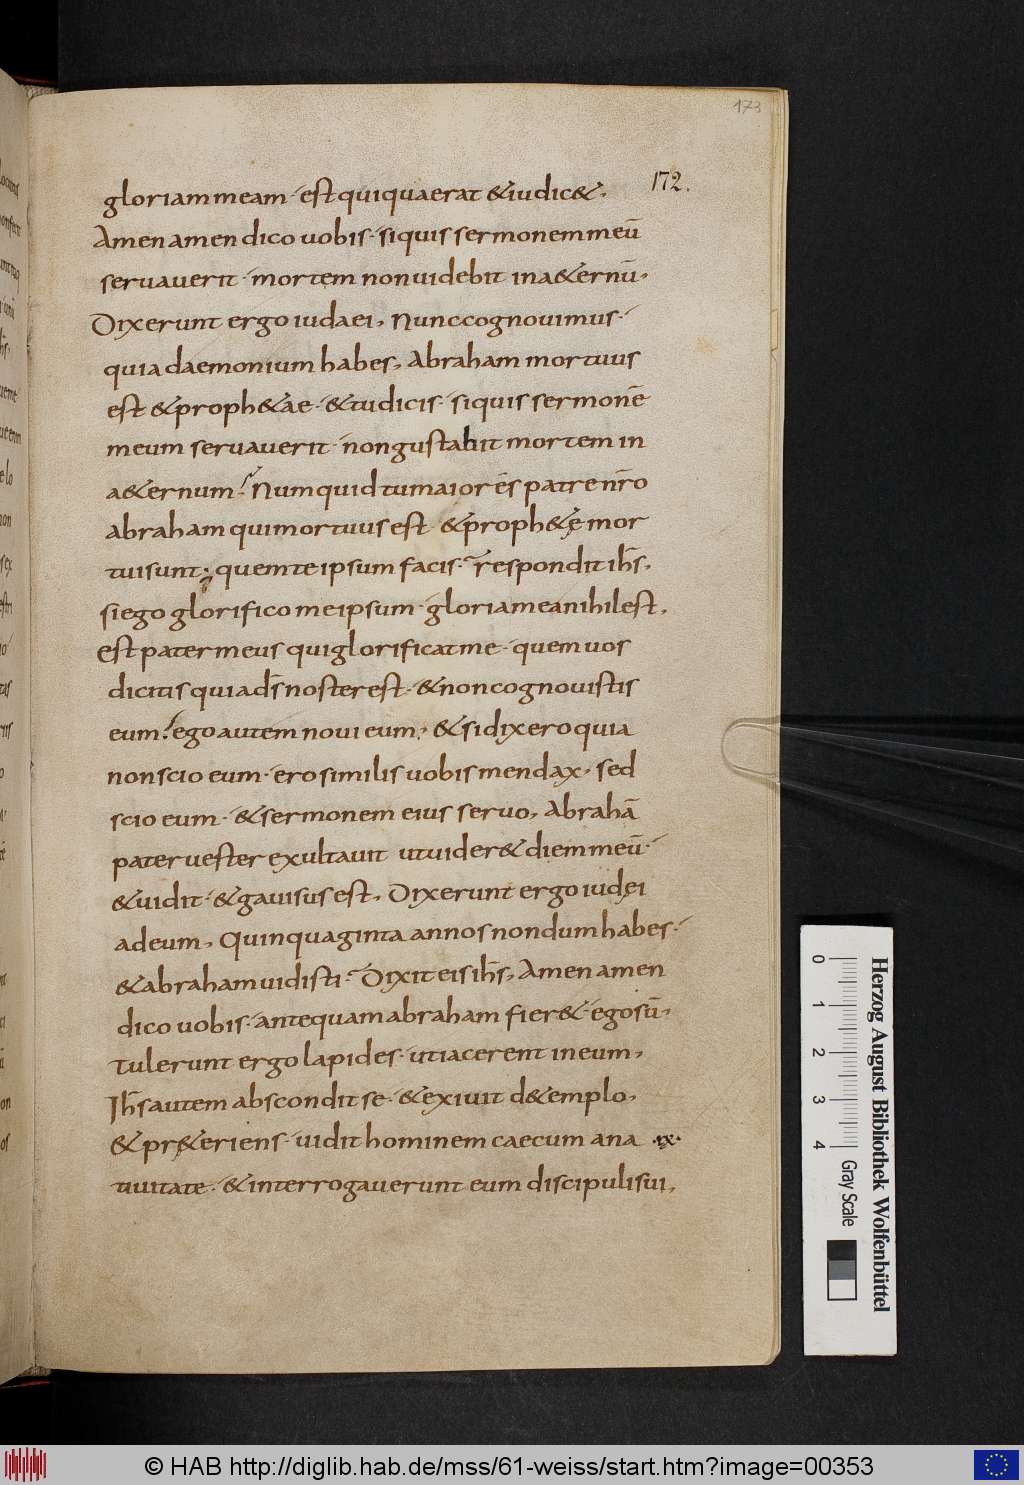 173
172.
gloriam meam · est qui quaerat & iudic& ·
Amen amen dico uobis · siquis sermonem meū
seruauerit · mortem non uidebit in a&ernū ·
Dixerunt ergo iudaei, Nunc cognouimus ·
quia daemonium habes, Abraham mortuus
est & proph&ae · & tu dicis · siquis sermonē
meum seruauerit · non gustabit mortem in
a&ernum? Numquid tu maior es patre nr̄o
abraham qui mortuus est & proph&ę mor
tui sunt; quem te ipsum facis · respondit ihs̄,
si ego glorifico me ipsum · gloria mea nihil est,
est pater meus qui glorificat me · quem uos
dicitis quia ds̄ noster est · & non cognouistis
eum · ego autem noui eum, & si dixero quia
non scio eum · ero similis uobis mendax, sed
scio eum · & sermonem eius seruo, Abrahā
pater uester exultauit ut uider& diem meū ·
& uidit · & gauisus est, Dixerunt ergo iudęi
ad eum, Quinquaginta annos nondum habes ·
& abraham uidisti · Dixit eis ihs̄, Amen amen
dico uobis · antequam abraham fier& · ego sū,
Tulerunt ergo lapides · ut iacerent in eum,
Ihs̄ autem abscondit se · & exiuit de templo,
& pr&eriens · uidit hominem caecum a na ·ix·
tiuitate · & interrogauerunt eum discipuli sui,
0 1 2 3 4
Gray Scale
Herzog August Bibliothek Wolfenbüttel
© HAB http://diglib.hab.de/mss/61-weiss/start.htm?image=00353